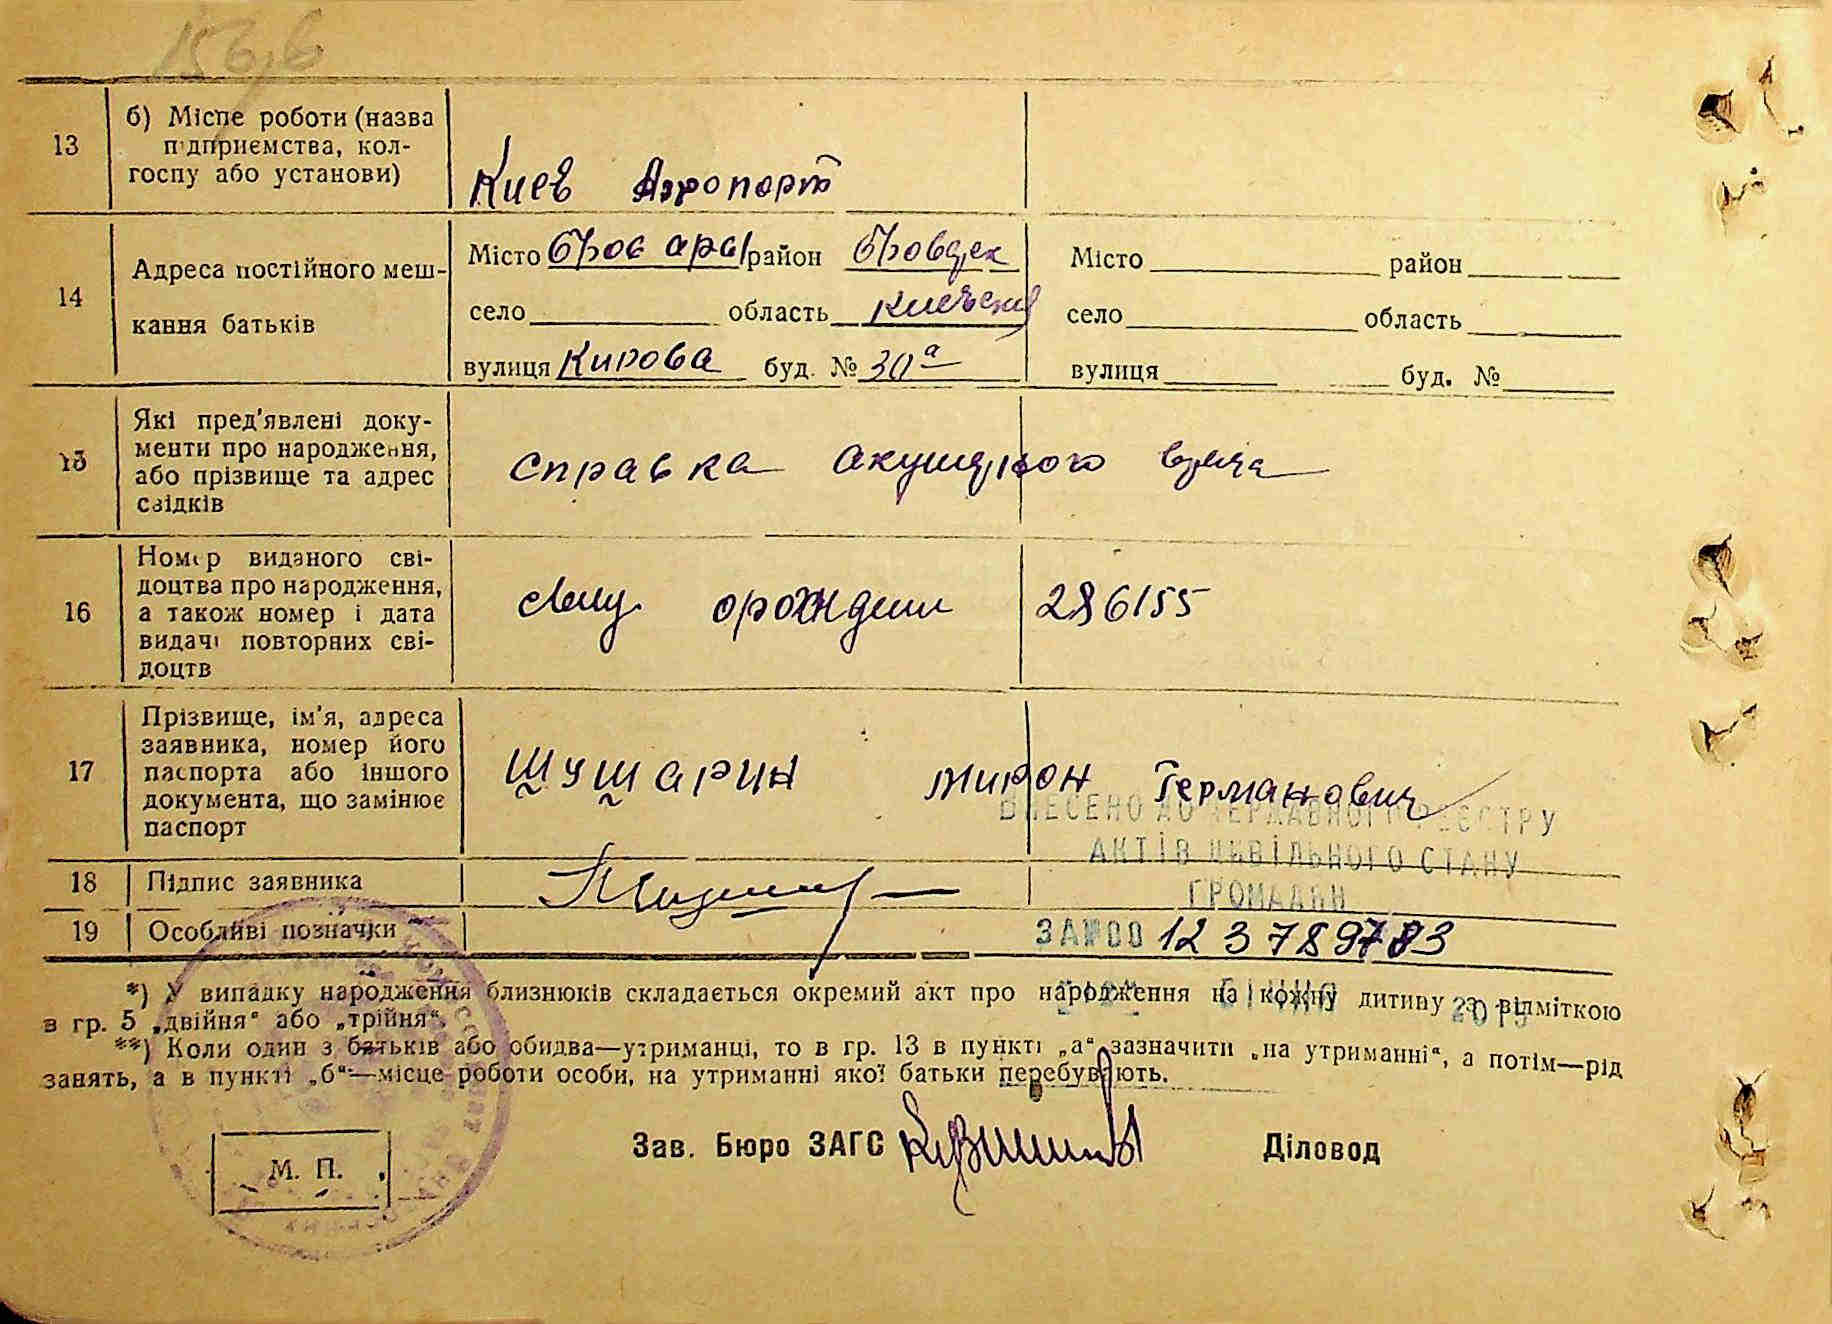 156,6
13
б) Місце роботи (назва
підприємства, кол-
госпу або установи)
Киев Аэропорт
14
Адреса постійного меш-
кання батьків
Місто Бровары район Бровдск
село область Киевский
вулиця Кирова буд. № 30а
Місто район
село область
вулиця буд. №
15
Які пред'явлені доку-
менти про народження,
або прізвище та адрес
свідків
справка акушерского врача
16
Номер виданого сві-
доцтва про народження,
а також номер і дата
видачі повторних сві-
доцтв
286155
17
Прізвище, ім'я, адреса
заявника, номер його
паспорта або іншого
документа, що замінює
паспорт
Шушарин Мирон Германович
ВНЕСЕНО ДО ДЕРЖАВНОГО РЕЄСТРУ
АКТІВ ЦИВІЛЬНОГО СТАНУ
ГРОМАДЯН
18
Підпис заявника
19
Особливі позначки
ЗА №00 123789783
*) У випадку народження близнюків складається окремий акт про народження на кожну дитину з відміткою
в гр. 5 „двійня“ або „трійня“.
**) Коли один з батьків або обидва—утриманці, то в гр. 13 в пункті „а“ зазначити „на утриманні“, а потім—рід
занять, а в пункті „б“—місце роботи особи, на утриманні якої батьки перебувають.
М. П.
Зав. Бюро ЗАГС
Діловод